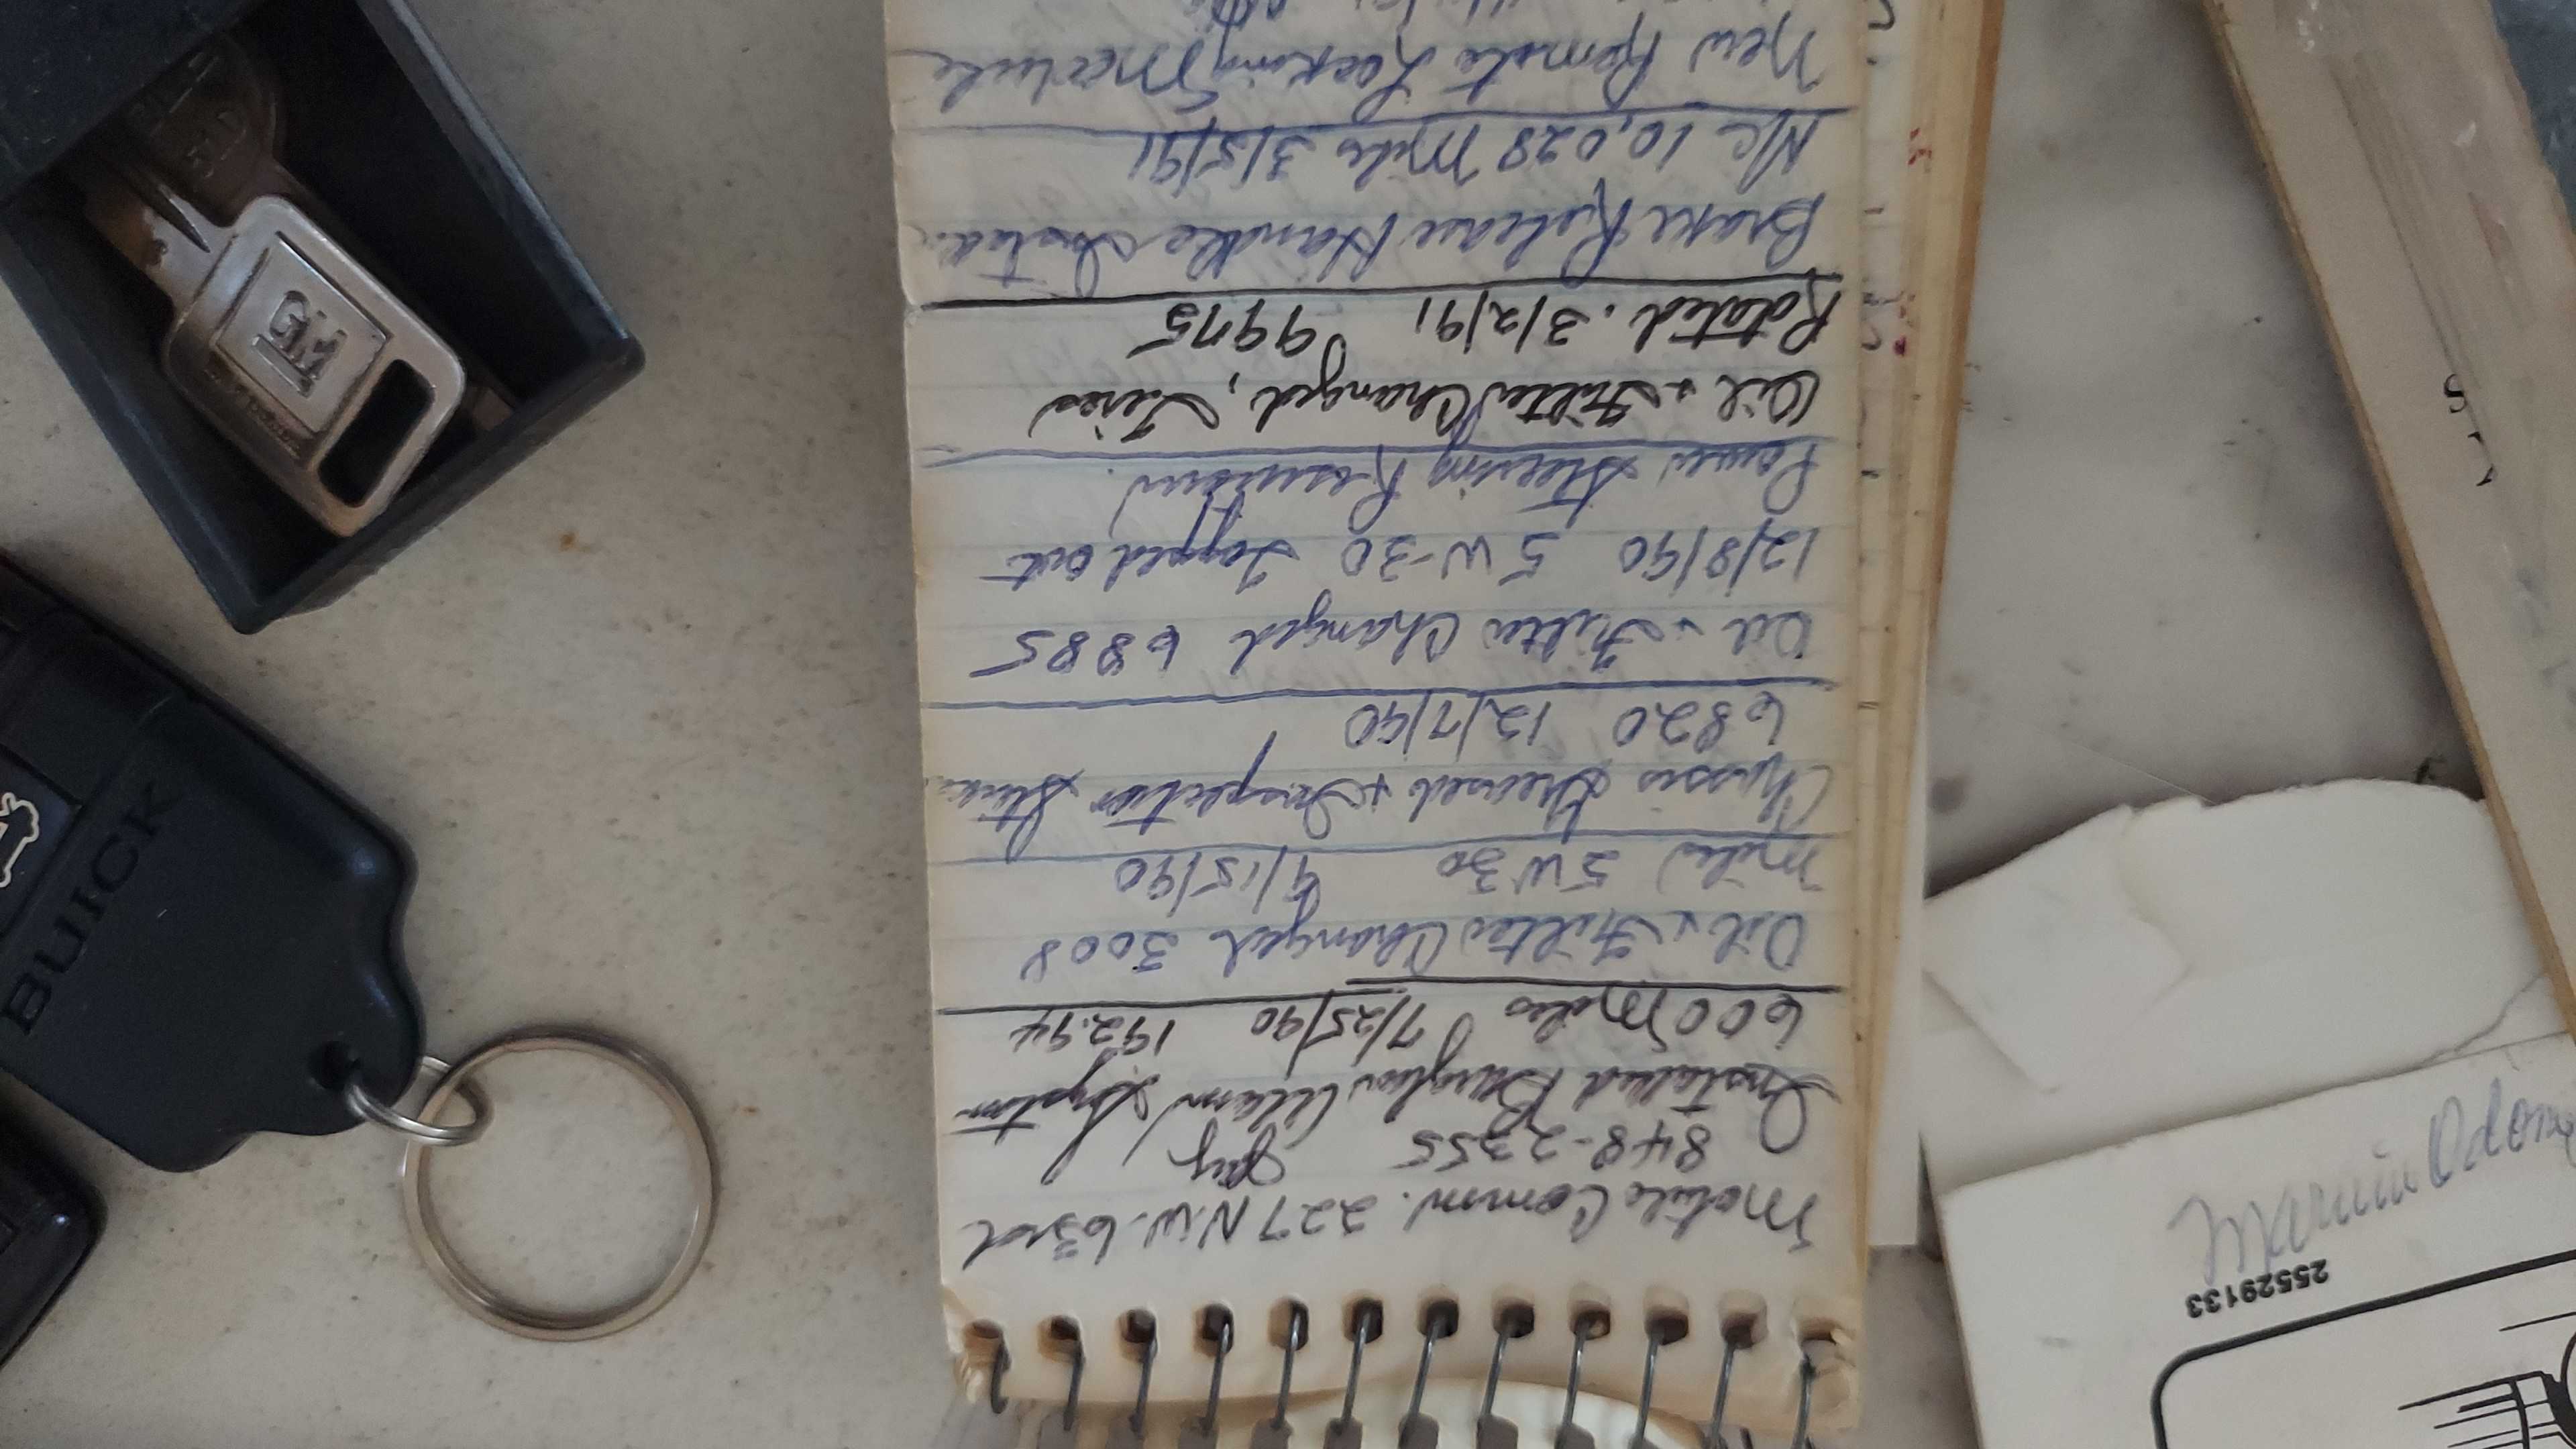 Mobile Comm. 227 N.W. 63rd
848-2355 Jay
Installed Burglar Alarm System
600 Miles 7/25/90 192.94
Oil & Filter Changed 3008
Miles 5W30 9/15/90
Chassis Greased & Inspection
6820 12/7/90
Oil & Filter Changed 6885
12/8/90 5W-30 Topped out
Power Steering Reservour.
Oil & Filter Changed, Tires
Rotated. 3/2/91 9975
Brake Release Handle
N/C 10,028 Miles 3/5/91
New Remote Locking Module
GM
BUICK
Marvin Odom
25529133